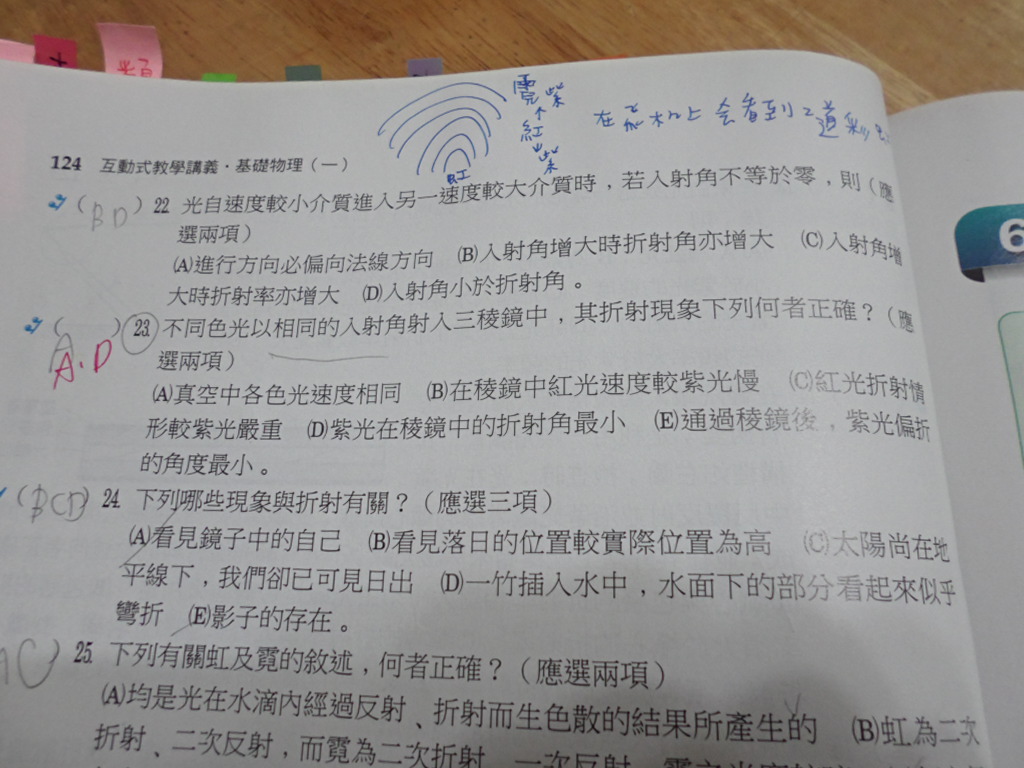 類
霓 紫
紅
紫
虹
在飛机上会看到2道
124 互動式教學講義・基礎物理(一)
6
(BD) 22. 光自速度較小介質進入另一速度較大介質時,若入射角不等於零,則(應
選兩項)
(A)進行方向必偏向法線方向 (B)入射角增大時折射角亦增大 (C)入射角增
大時折射率亦增大 (D)入射角小於折射角。
(A) 23. 不同色光以相同的入射角射入三稜鏡中,其折射現象下列何者正確?(應
A.D
選兩項)
(A)真空中各色光速度相同 (B)在稜鏡中紅光速度較紫光慢 (C)紅光折射情
形較紫光嚴重 (D)紫光在稜鏡中的折射角最小 (E)通過稜鏡後,紫光偏折
的角度最小。
(BCD) 24. 下列哪些現象與折射有關?(應選三項)
(A)看見鏡子中的自己 (B)看見落日的位置較實際位置為高 (C)太陽尚在地
平線下,我們卻已可見日出 (D)一竹插入水中,水面下的部分看起來似乎
彎折 (E)影子的存在。
AC) 25. 下列有關虹及霓的敘述,何者正確?(應選兩項)
(A)均是光在水滴內經過反射、折射而生色散的結果所產生的 (B)虹為二次
折射、二次反射,而霓為二次折射、一次反射